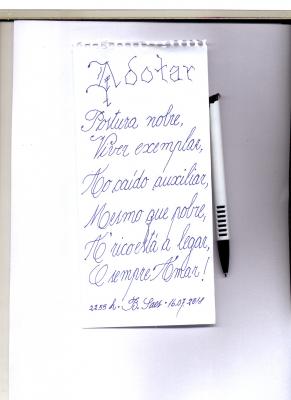 Adotar
Postura nobre,
Viver exemplar,
Ao caído auxiliar,
Mesmo que pobre,
A' rico está a legar,
E sempre Amar!
2255 h. B. Saes. 16.07.2011